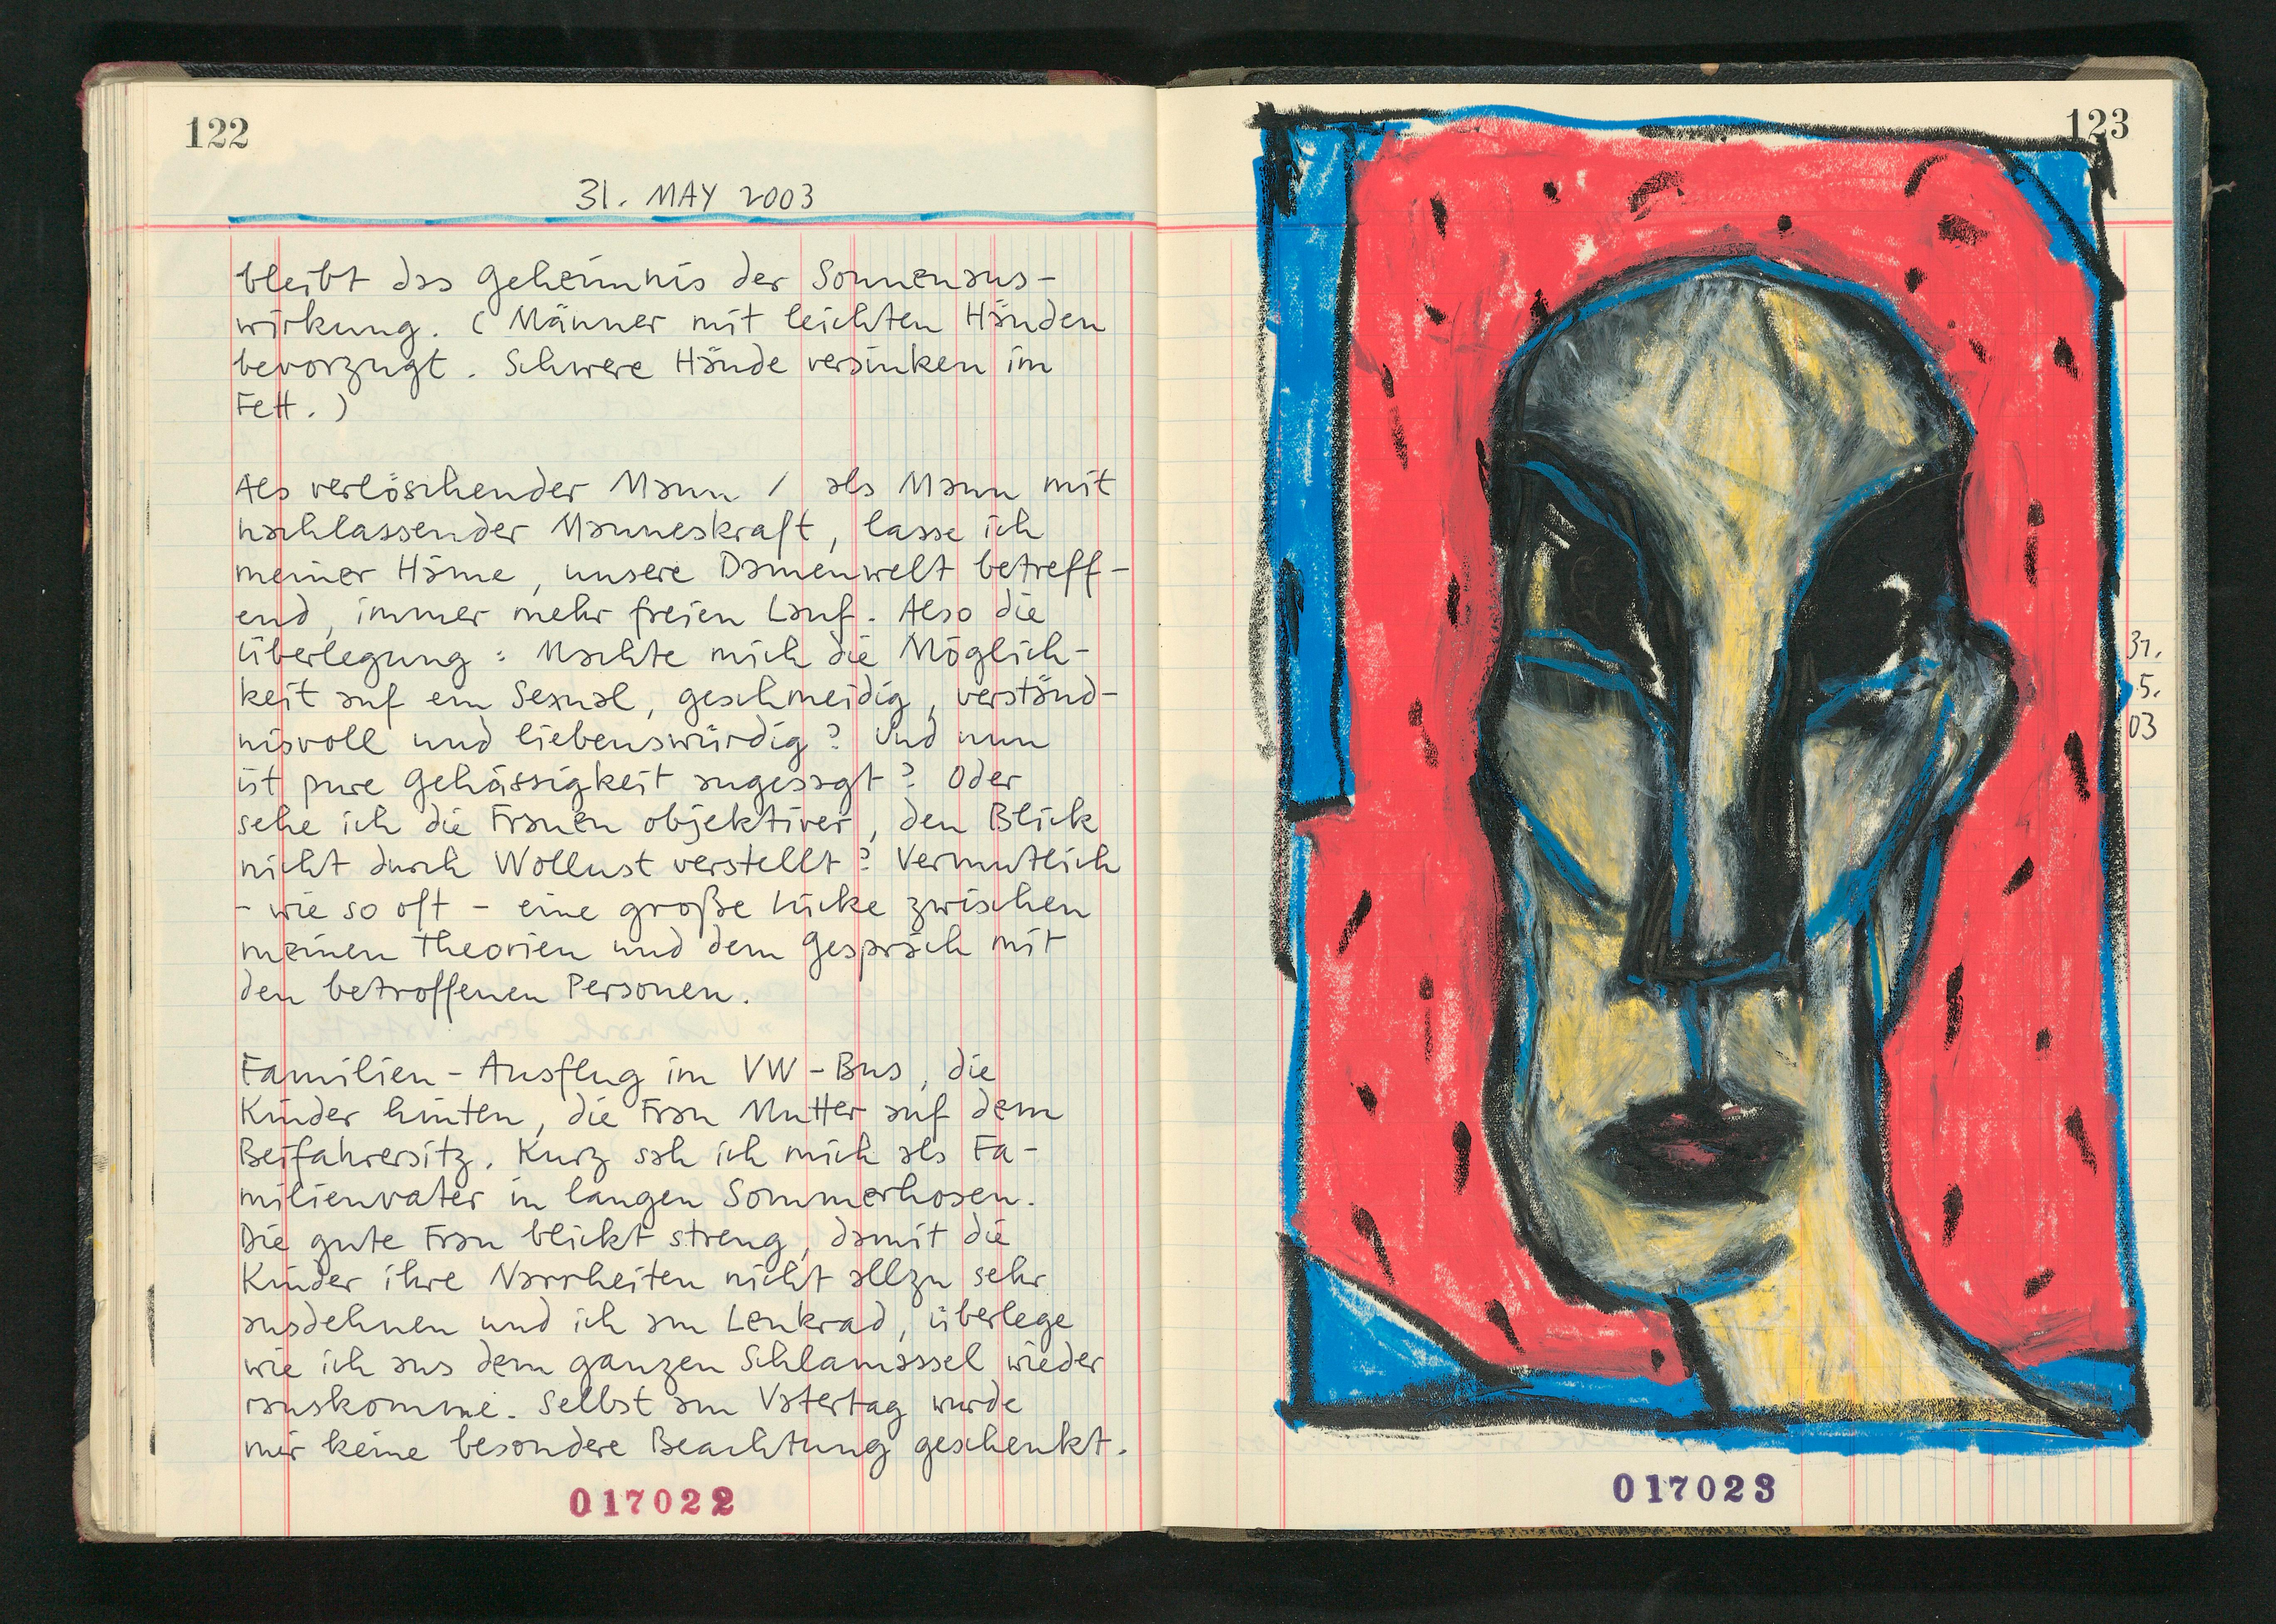 122
31. MAY 2003
bleibt das Geheimnis der Sonnenaus-
wirkung. (Männer mit leichten Händen
bevorzugt. Schwere Hände versinken im
Fett.)
Als verlöschender Mann / als Mann mit
nachlassender Manneskraft, lasse ich
meiner Häme, unsere Damenwelt betreff-
end, immer mehr freien Lauf. Also die
Überlegung: Machte mich die Möglich-
keit auf ein Sexual, geschmeidig, verständ-
nisvoll und liebenswürdig? Und nun
ist pure Gehässigkeit angesagt? Oder
sehe ich die Frauen objektiver, den Blick
nicht durch Wollust verstellt? Vermutlich
- wie so oft - eine große Lücke zwischen
meinen Theorien und dem Gespräch mit
den betroffenen Personen.
Familien-Ausflug im VW-Bus, die
Kinder hinten, die Frau Mutter auf dem
Beifahrersitz. Kurz sah ich mich als Fa-
milienvater in langen Sommerhosen.
Die gute Frau blickt streng, damit die
Kinder ihre Narrheiten nicht allzu sehr
ausdehnen und ich am Lenkrad, überlege
wie ich aus dem ganzen Schlamassel wieder
rauskomme. Selbst am Vatertag wurde
mir keine besondere Beachtung geschenkt.
017022
123
31.
5.
03
017023